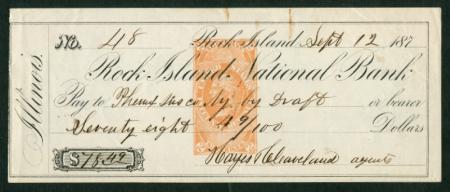 No. 48 Rock Island Sept 12 187
Illinois.
Rock Island National Bank
Pay to Phenix Ins Co. Ny. by Draft or bearer
Seventy eight 49/100 Dollars
$78.49 Hayes & Cleaveland agents